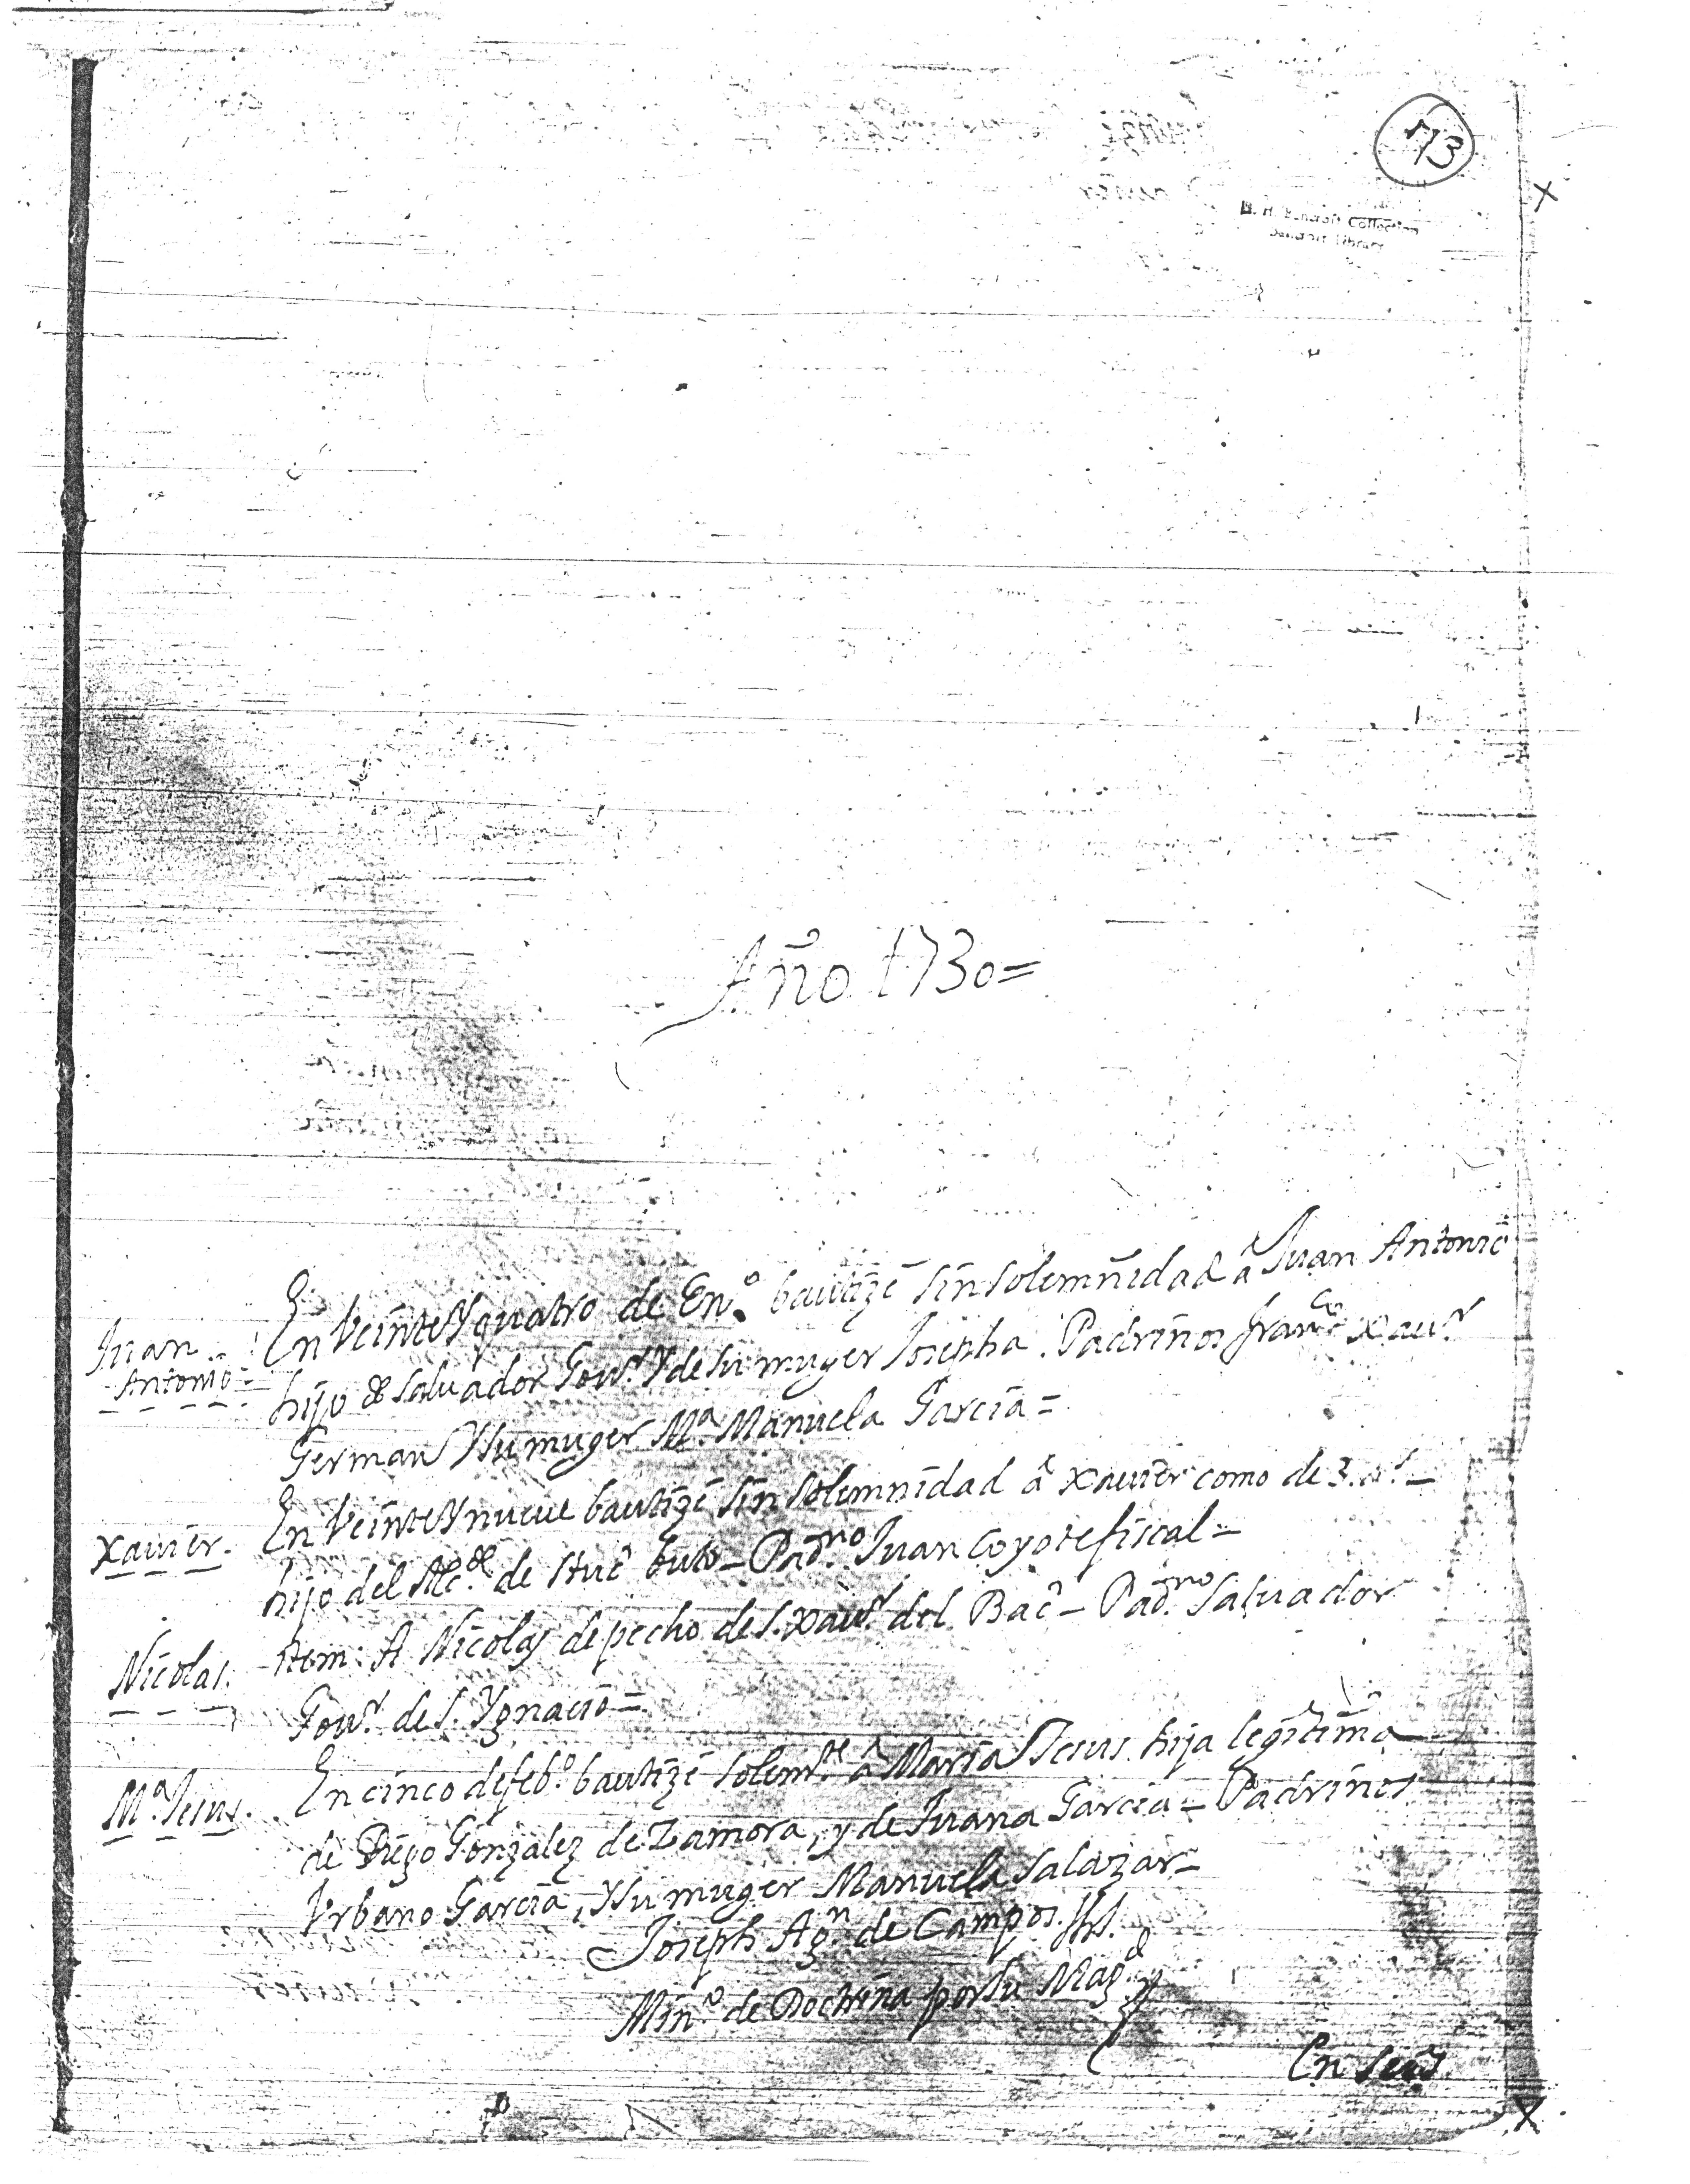 173
H. H. Bancroft Collection
Bancroft Library
Año 1730=
Juan
Antonio=
En Veinte Y quatro de En.º bautizé sin solemñidad â Juan Antonio
hijo de Salvador Gov.r Y de su muger Josepha. Padrinos Fran.co Xav.r
German Y su muger M.a Manuela Garcia=
Xavier.
En Veinte Y nueve bautizé sin solemnidad â Xavier como de 3. a.s
hijo del Alc.de de buto – Pad.no Juan Coyote fiscal=
Nicolas.
Item: A Nicolas de pecho de S. Xav.r del Bac – Pad.no Salvador
Gov.r de S. Ygnacio=
M.a Jesus.
En cinco de feb.º bautizé solem.te â Maria Jesus hija legitima
de Diego Gonzalez de Zamora, y de Juana Garcia – Padrinos
Vrbano Garcia, Y su muger Manuela Salazar–
Joseph Ag.n de Campos. JHS.
Min.º de Doctrina por su Mag.d
En seis